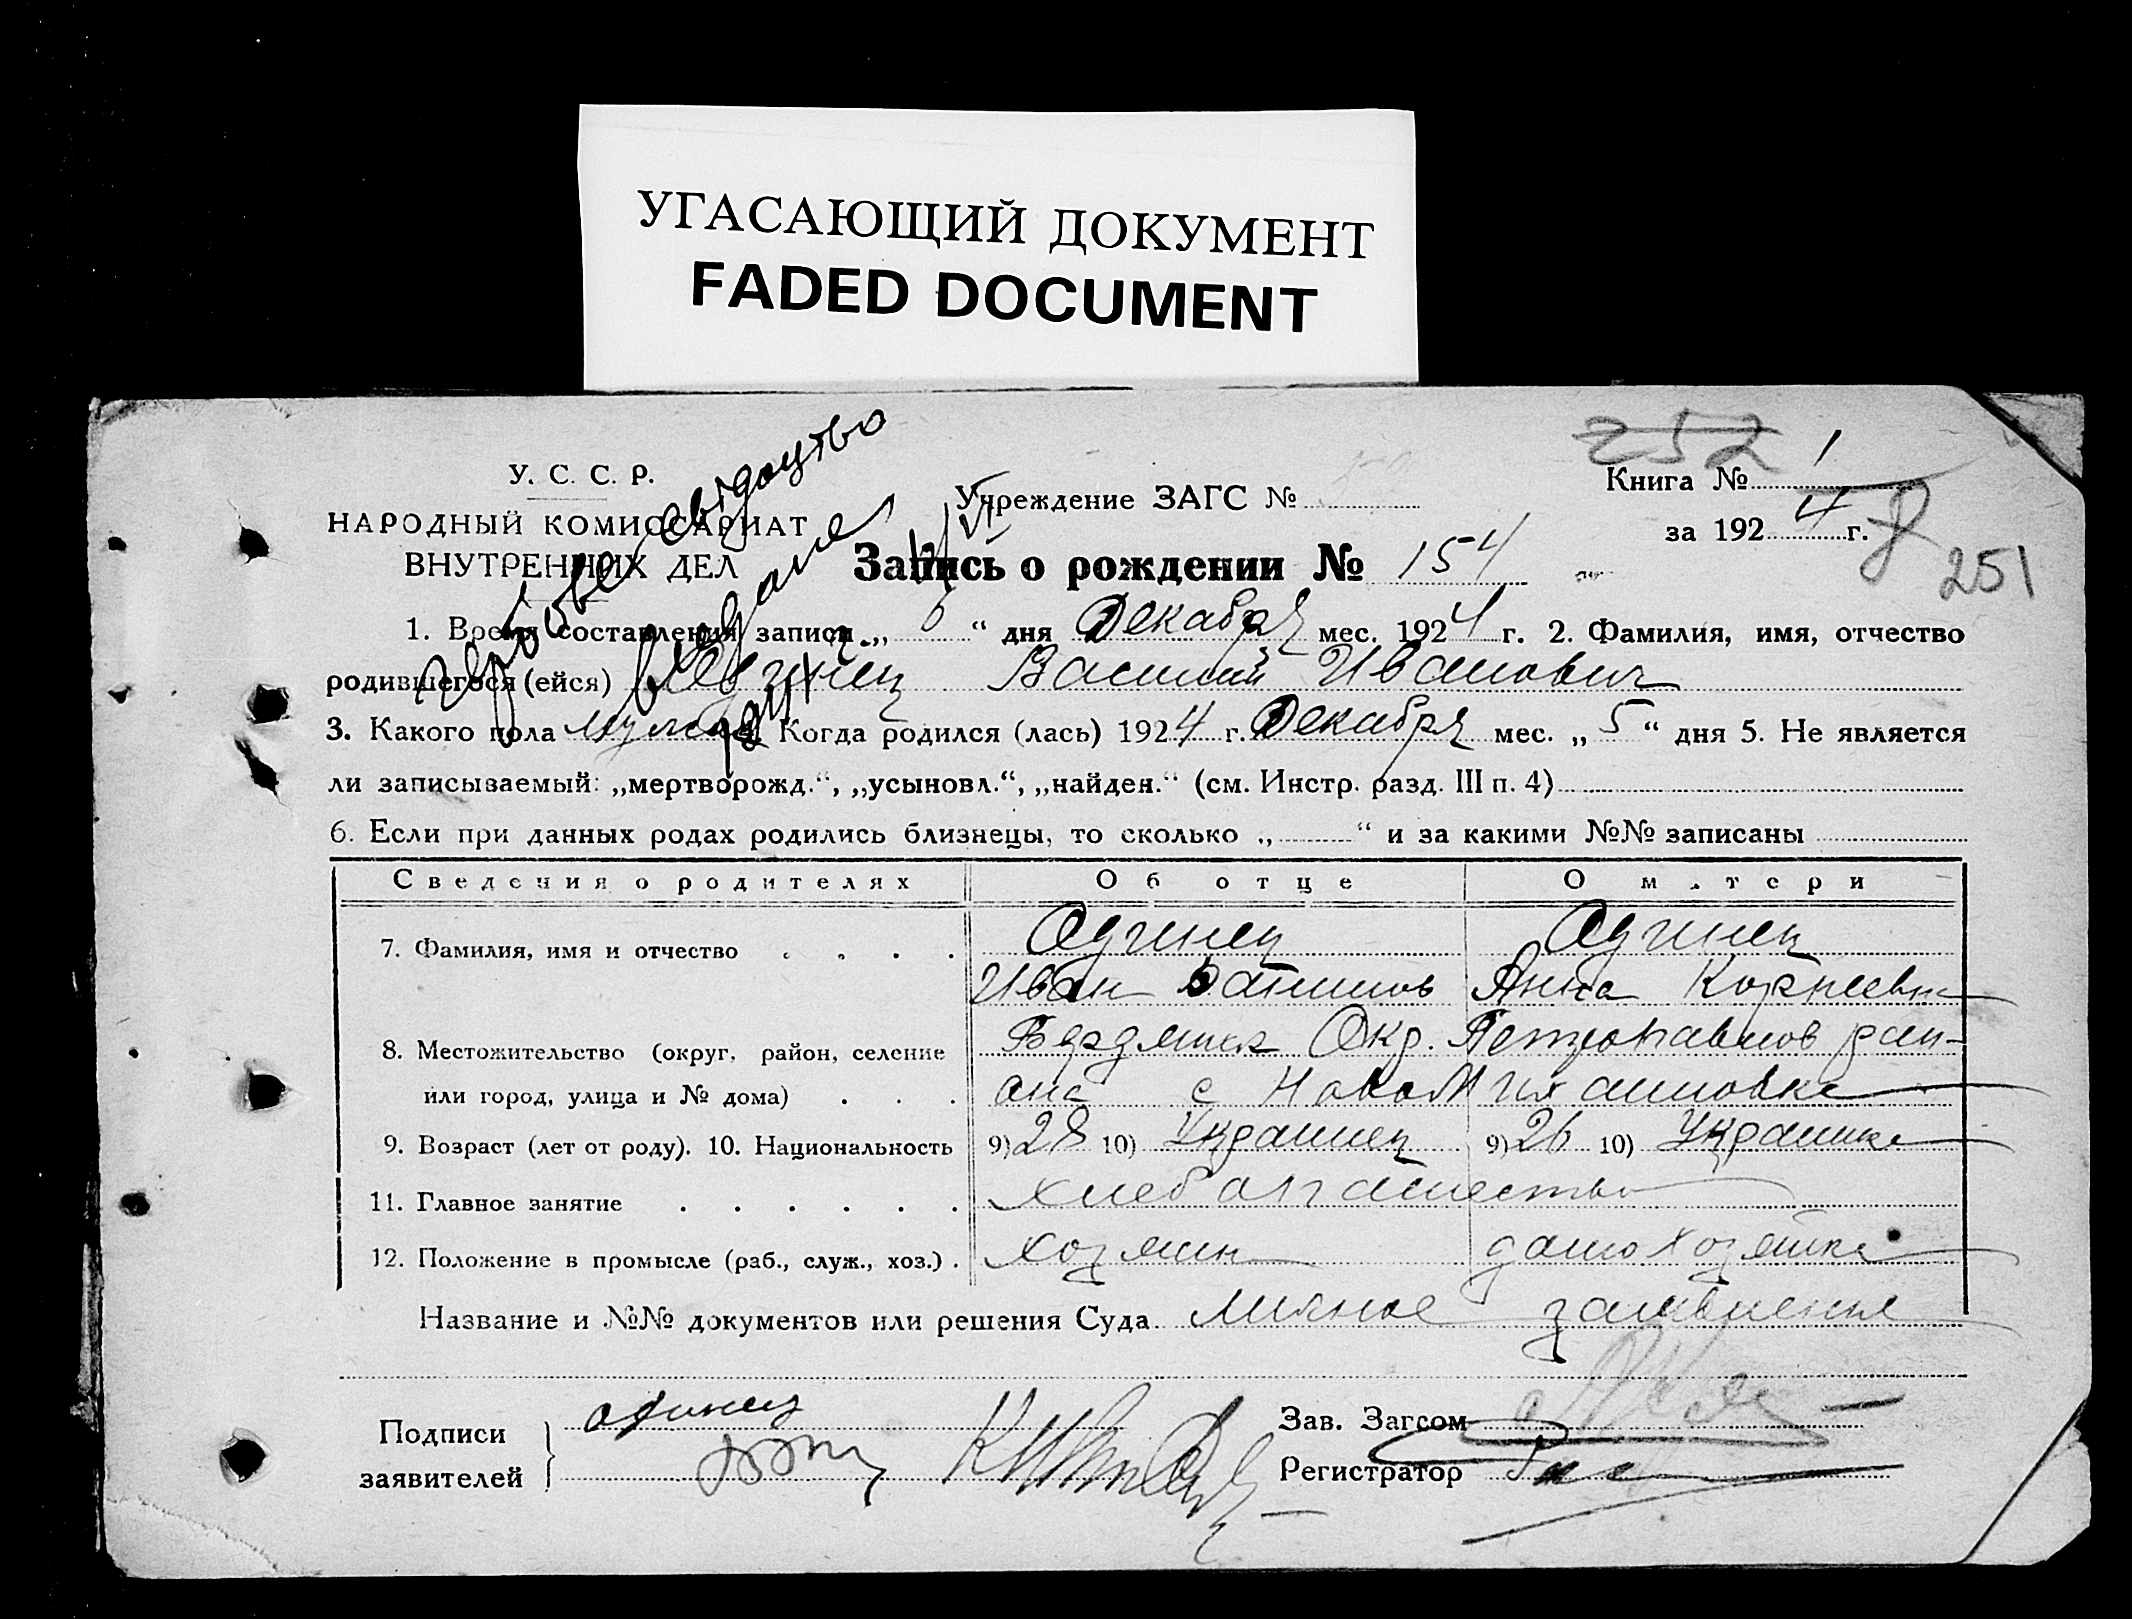 УГАСАЮЩИЙ ДОКУМЕНТ
FADED DOCUMENT
252
У. С. С. Р.
НАРОДНЫЙ КОМИССАРИАТ
ВНУТРЕННИХ ДЕЛ
Учреждение ЗАГС №
Книга № 1
за 1924 г.
251
Запись о рождении № 154
свідоцтво
видане
1. Время составления записи „ 6 “ дня Декабря мес. 1924 г. 2. Фамилия, имя, отчество
родившегося (ейся) Одинец Василий Иванович
3. Какого пола мужск 4. Когда родился (лась) 1924 г. Декабря мес. „ 5 “ дня 5. Не является
ли записываемый: „мертворожд.“, „усыновл.“, „найден.“ (см. Инстр. разд. III п. 4)
6. Если при данных родах родились близнецы, то сколько „ “ и за какими №№ записаны
Сведения о родителях Об отце О матери
7. Фамилия, имя и отчество Одинец Одинец
Иван Анна Корнеевна
8. Местожительство (округ, район, селение Бердянск Окр. Петропавлов рай-
или город, улица и № дома) она с Ново Михайловка
9. Возраст (лет от роду). 10. Национальность 9) 28 10) Украинец 9) 26 10) Украинка
11. Главное занятие хлебопашество
12. Положение в промысле (раб., служ., хоз.) хозяин домохозяйка
Название и №№ документов или решения Суда личное заявление
Подписи
заявителей
Одинец
Зав. Загсом
Регистратор